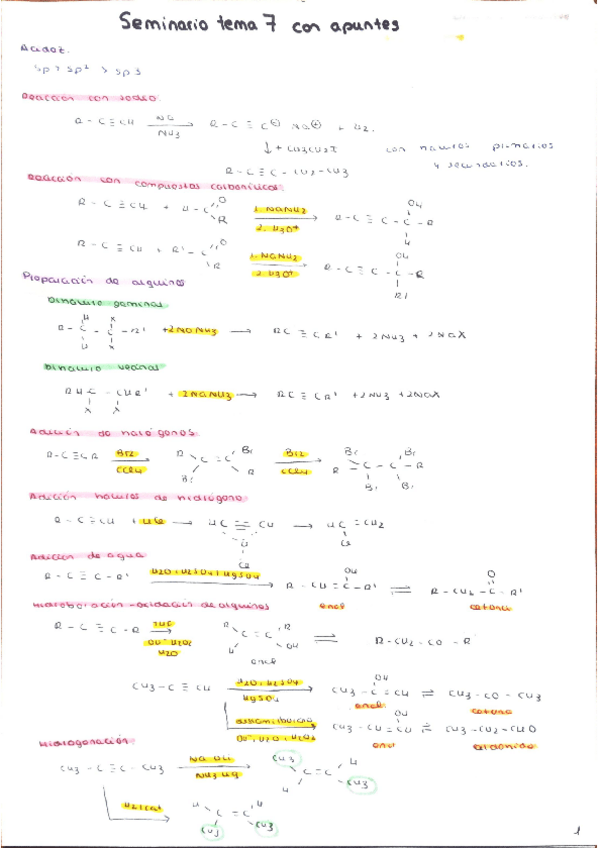 Seminario tema 7 con apuntes
Acidez.
sp > sp² > sp3
Reacción con sodio
R - C ≡ CH Na NH3 R - C ≡ C ⊖ Na ⊕ + H2.
↓ + CH3CH2X con haluros primarios
R - C ≡ C - CH2 - CH3 y secundarios.
Reacción con compuestos carbonílicos:
R - C ≡ CH + H - C O R 1. NaNH2 2. H3O+ R - C ≡ C - C - R OH H
R - C ≡ CH + R' - C O R 1. NaNH2 2. H3O+ R - C ≡ C - C - R OH R'
Preparación de alquinos
Dihaluro geminal
R - C - C - R' H X H X + 2NaNH2 → RC ≡ CR' + 2NH3 + 2NaX
Dihaluro vecinal
RHC - CHR' X X + 2NaNH2 → RC ≡ CR' + 2NH3 + 2NaX
Adición de halógenos:
R - C ≡ CR Br2 CCl4 R Br C = C Br R Br2 CCl4 R - C - C - R Br Br Br Br
Adición haluros de hidrógeno
R - C ≡ CH + HCl → HC CH H Cl → HC = CH2 Cl
Adición de agua
R - C ≡ C - R' H2O, H2SO4, HgSO4 R - CH = C - R' OH ⇌ R - CH2 - C - R' O
enol cetona
Hidroboración - oxidación de alquinos
R - C ≡ C - R OH⁻ H2O2 H2O R R C = C H OH ⇌ R - CH2 - CO - R
enol
CH3 - C ≡ CH H2O, H2SO4 HgSO4 CH3 - C = CH OH ⇌ CH3 - CO - CH3
enol cetona
OH⁻, H2O, H2O2 CH3 - CH = CH OH ⇌ CH3 - CH2 - CHO
enol aldehído
Hidrogenación:
CH3 - C ≡ C - CH3 Na NH3 liq CH3 H C = C H CH3
H2 / cat H H C = C CH3 CH3
1